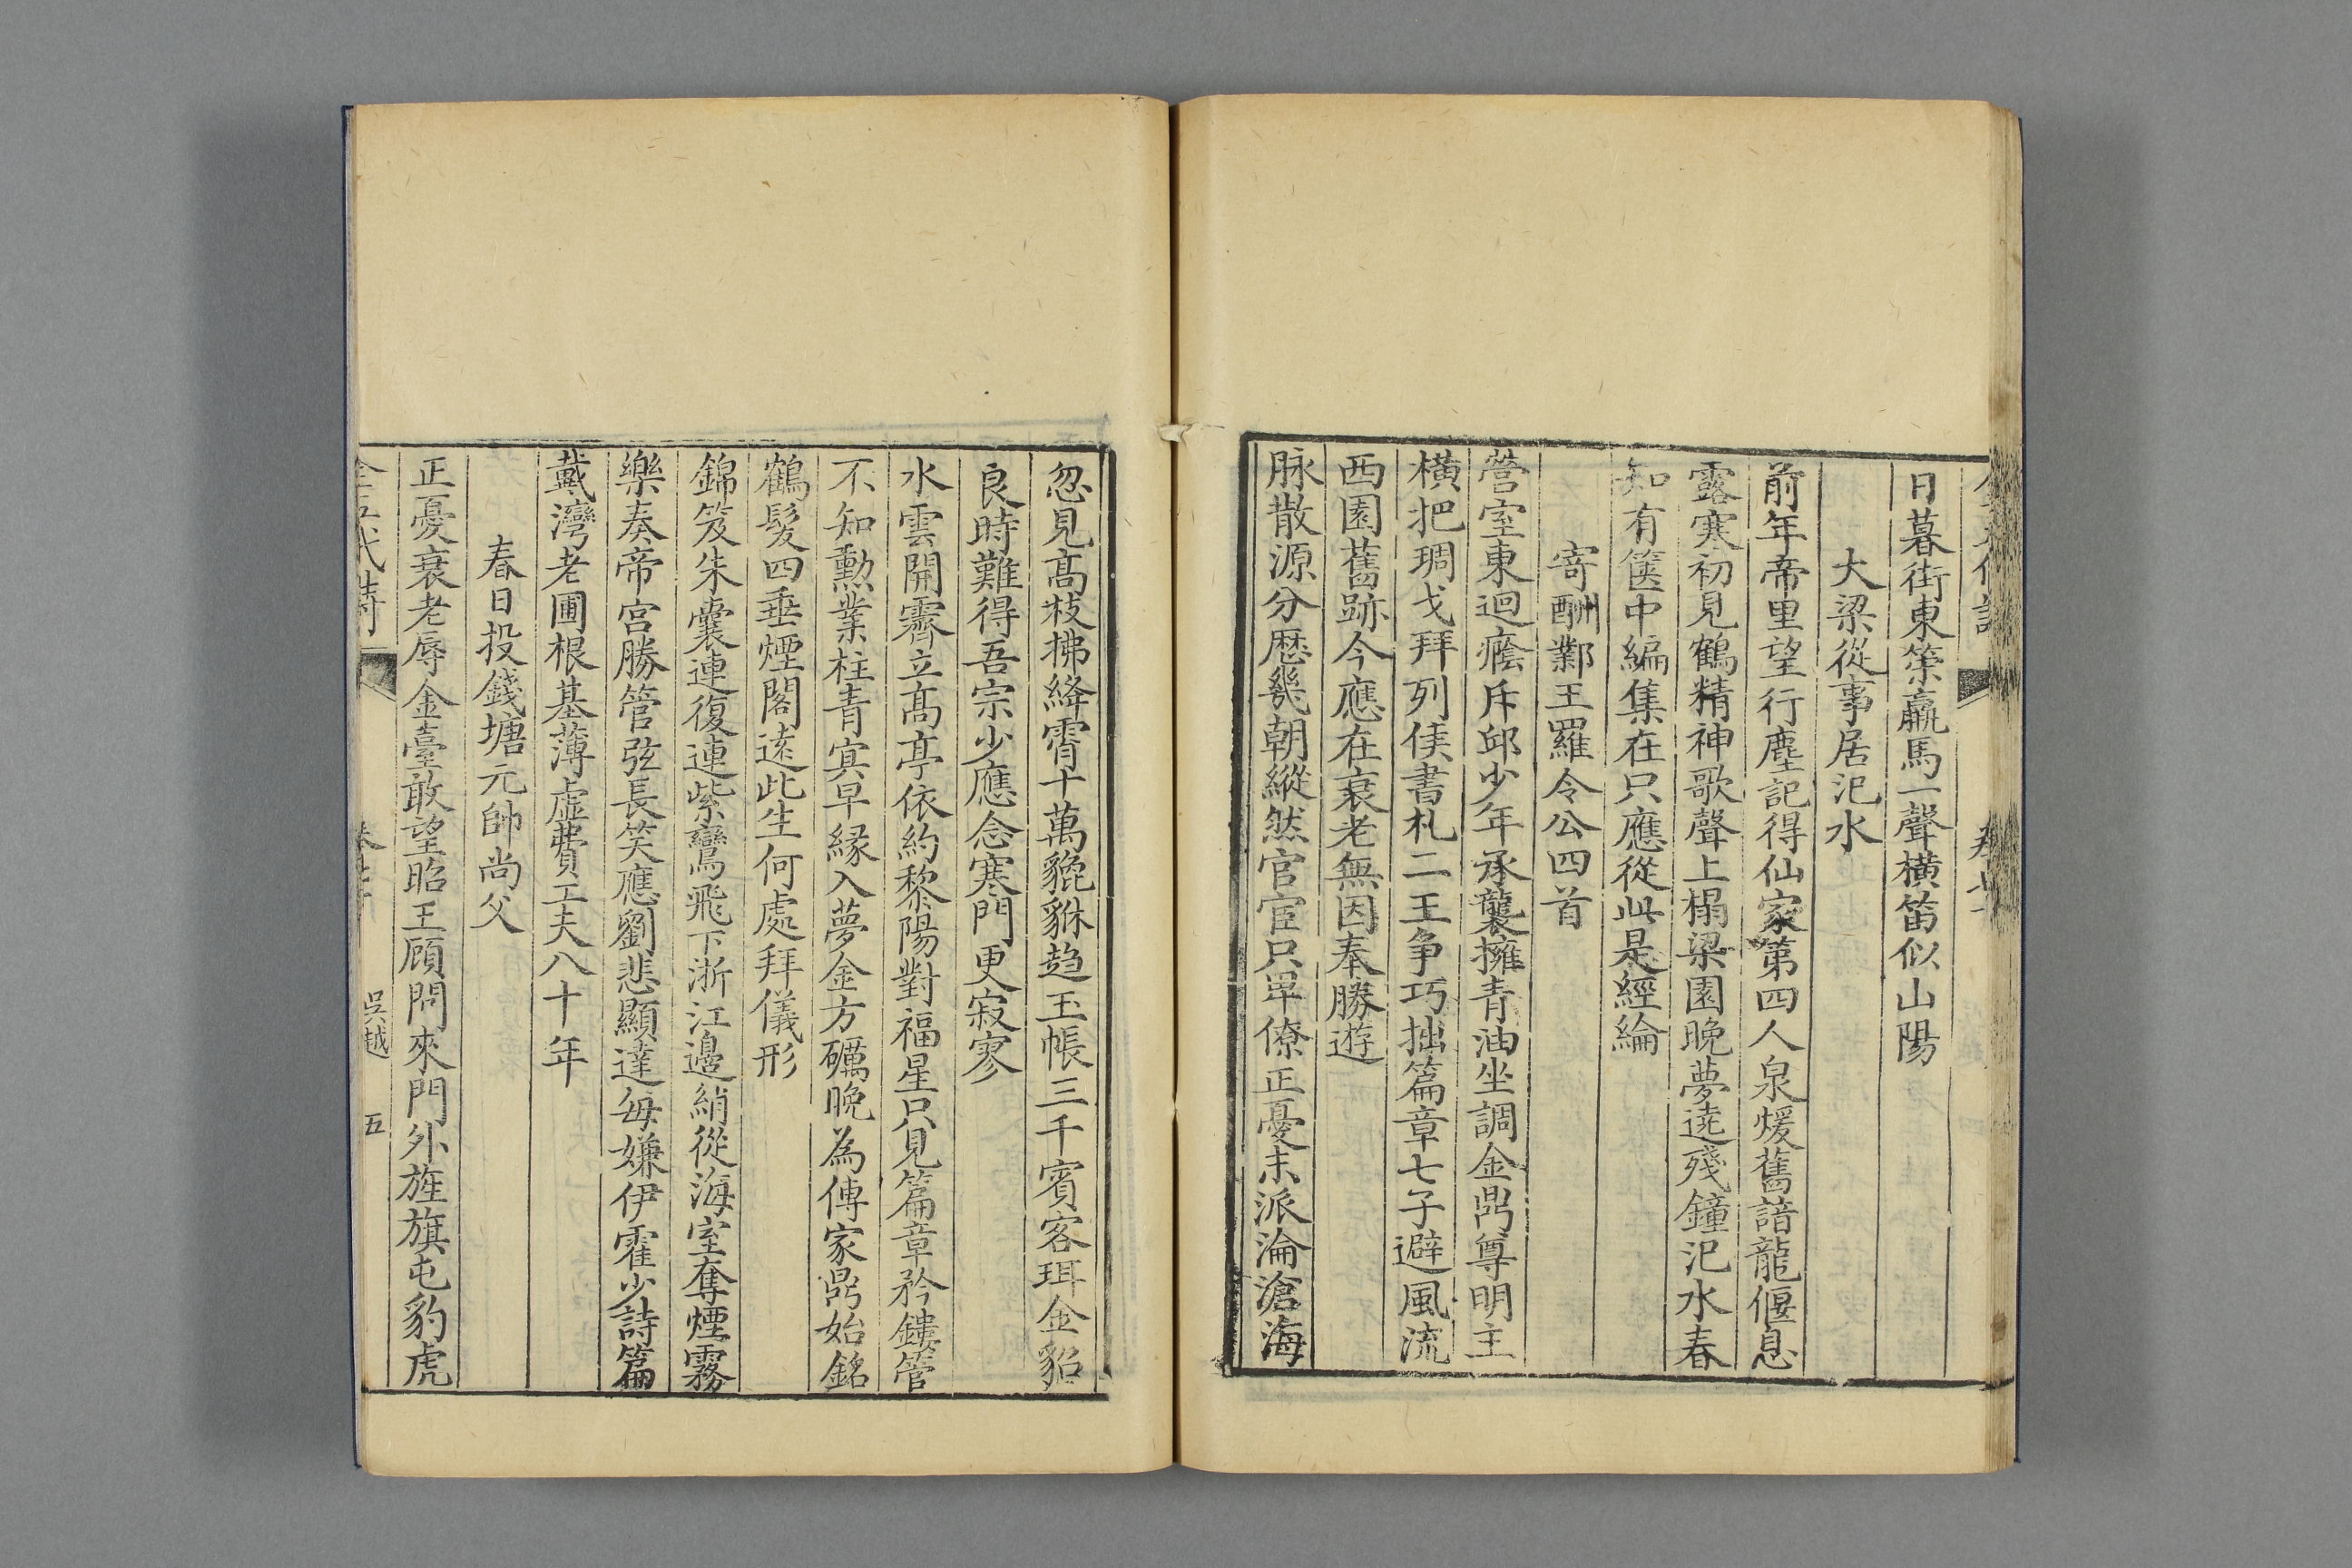 日暮街東策羸馬一聲橫笛似山陽
大梁從事居汜水
前年帝里望行塵記得仙家第四人泉煖舊諳龍偃息
露寒初見鶴精神歌聲上榻梁園晚夢遶殘鐘汜水春
知有篋中編集在只應從此是經綸
寄酬鄴王羅令公四首
營室東迴癊斥邱少年承襲擁青油坐調金鼎尊明主
橫把琱戈拜列侯書札二王爭巧拙篇章七子避風流
西園舊跡今應在衰老無因奉勝遊
脉散源分歷幾朝縱然官宦只單僚正憂末派淪滄海
忽見髙枝拂絳霄十萬貔貅趨玉帳三千賓客珥金貂
良時難得吾宗少應念寒門更寂寥
水雲開霽立髙亭依約黎陽對福星只見篇章矜鏤管
不知勳業柱青㝠早縁入夢金方礪晚為傳家鼎始銘
鶴髪四垂煙閣遠此生何處拜儀形
錦笈朱囊連復連紫鸞飛下浙江邊綃從海室奪煙霧
樂奏帝宮勝管弦長笑應劉悲顯達每嫌伊霍少詩篇
戴灣老圃根基薄虛費工夫八十年
春日投錢塘元帥尚父
正憂衰老辱金臺敢望昭王顧問來門外旌旗屯豹虎
全五代詩
吳越
五